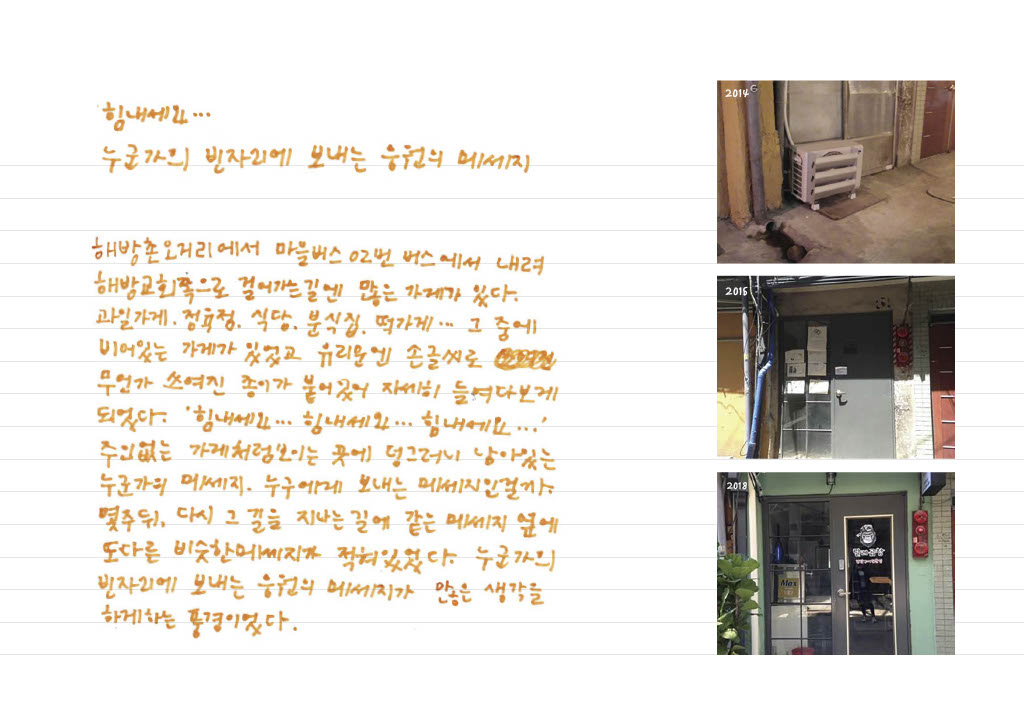 힘내세요...
누군가의 빈자리에 보내는 응원의 메세지
해방촌오거리에서 마을버스 02번 버스에서 내려
해방교회쪽으로 걸어가는길엔 많은 가게가 있다.
과일가게. 정육점. 식당. 분식집. 떡가게... 그 중에
비어있는 가게가 있었고 유리문엔 손글씨로
무언가 쓰여진 종이가 붙어있어 자세히 들여다보게
되었다. '힘내세요... 힘내세요... 힘내세요...'
주인없는 가게처럼보이는 곳에 덩그러니 남아있는
누군가의 메세지. 누구에게 보내는 메세지인걸까.
몇주뒤, 다시 그 길을 지나는길에 같은 메세지 옆에
또다른 비슷한메세지가 적혀있었다. 누군가의
빈자리에 보내는 응원의 메세지가 많은 생각을
하게하는 풍경이었다.
2014
2016
2018
Max